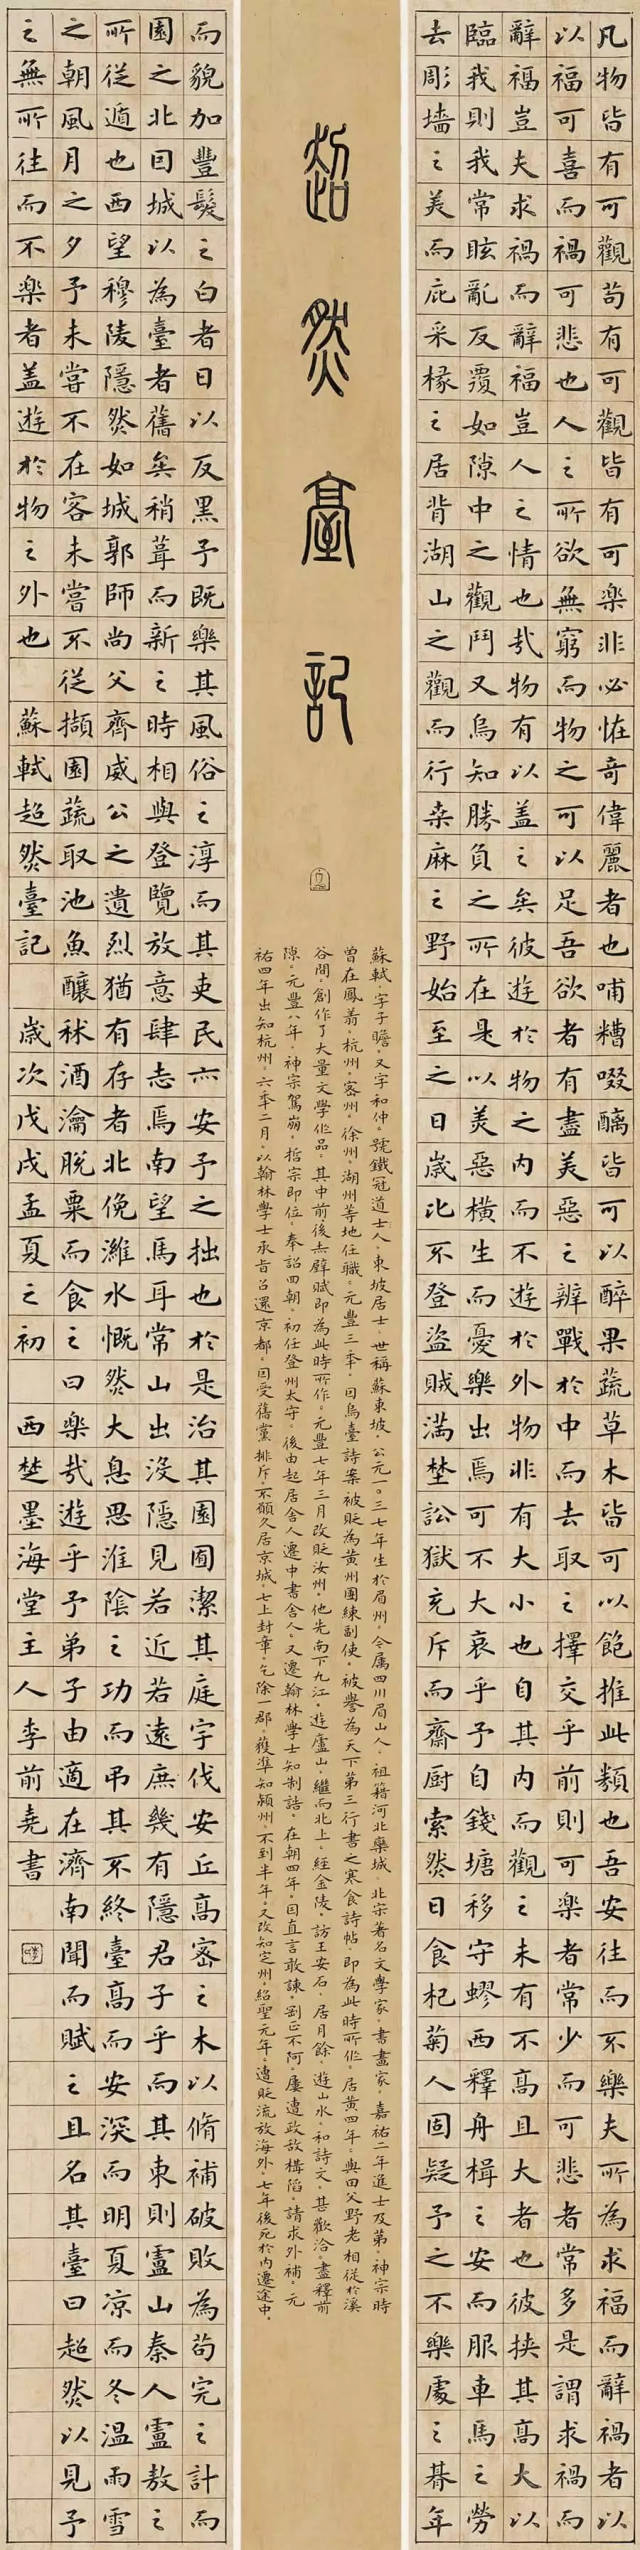 凡物皆有可觀苟有可觀皆有可楽非必恠奇偉麗者也哺糟啜醨皆可以醉果蔬草木皆可以飽推此類也吾安往而不樂夫所為求福而辭禍者以
以福可喜而禍可悲也人之所欲無窮而物之可以足吾欲者有盡美惡之辨戰於中而去取之擇交乎前則可楽者常少而可悲者常多是謂求禍而
辭福豈夫求禍而辭福豈人之情也哉物有以盖之矣彼遊於物之内而不遊於外物非有大小也自其内而觀之未有不高且大者也彼挾其高大以
臨我則我常眩亂反覆如隙中之觀鬥又烏知勝負之所在是以美惡橫生而憂樂出焉可不大哀乎予自錢塘移守膠西釋舟楫之安而服車馬之勞
去彫墻之美而庇采椽之居背湖山之觀而行桑麻之野始至之日歲比不登盜賊滿埜訟獄充斥而齋厨索然日食杞菊人固疑予之不樂處之朞年
超然臺記
蘇軾，字子瞻，又字和仲，號鐵冠道士人、東坡居士，世稱蘇東坡，公元一〇三七年生於眉州，今属四川眉山人，祖籍河北欒城，北宗著名文學家，書畫家，嘉祐二年進士及第，神宗時
曾在鳳翥、杭州、密州、徐州、湖州等地任職。元豐三年，因烏臺詩案被貶為黄州團練副使。被譽為天下第三行書之寒食詩帖，即為此時所作。居黄四年，與田父野老相從於溪
谷間，創作了大量文學作品，其中前、後赤壁賦即為此時所作。元豐七年三月改貶汝州，他先南下九江，遊廬山，繼而北上，經金陵，訪王安石，居月餘，遊山水，和詩文，甚歡洽，盡釋前
隙。元豐八年，神宗駕崩，哲宗即位，奉詔四朝，初任登州太守，後由起居舍人遷中書舍人，又遷翰林學士知制誥。在朝四年，因直言敢諫，剛正不阿，屢遭政敌構陷，請求外補。元
祐四年出知杭州，六年二月，以翰林學士承旨召還京都，因受舊黨排斥，不願久居京城，七上封章，乞除一郡，獲準知潁州，不到半年，又改知定州，紹聖元年，遭貶流放海外，七年後死於内遷途中。
而貌加豐髮之白者日以反黑予既樂其風俗之淳而其吏民亦安予之拙也於是治其園囿潔其庭宇伐安丘高密之木以脩補破敗為苟完之計而
園之北因城以為臺者舊矣稍葺而新之時相與登覽放意肆志焉南望馬耳常山出没隱見若近若遠庶幾有隱君子乎而其東則盧山秦人盧敖之
所從遁也西望穆陵隱然如城郭師尚父齊威公之遺烈猶有存者北俛濰水慨然大息思淮陰之功而弔其不終臺高而安深而明夏凉而冬温雨雪
之朝風月之夕予未嘗不在客未嘗不從擷園蔬取池魚釀秫酒瀹脱粟而食之曰楽哉遊乎予弟子由適在濟南聞而賦之且名其臺曰超然以見予
之無所往而不楽者盖遊於物之外也 蘇軾超然臺記 歲次戊戌孟夏之初 西埜墨海堂主人李前堯書